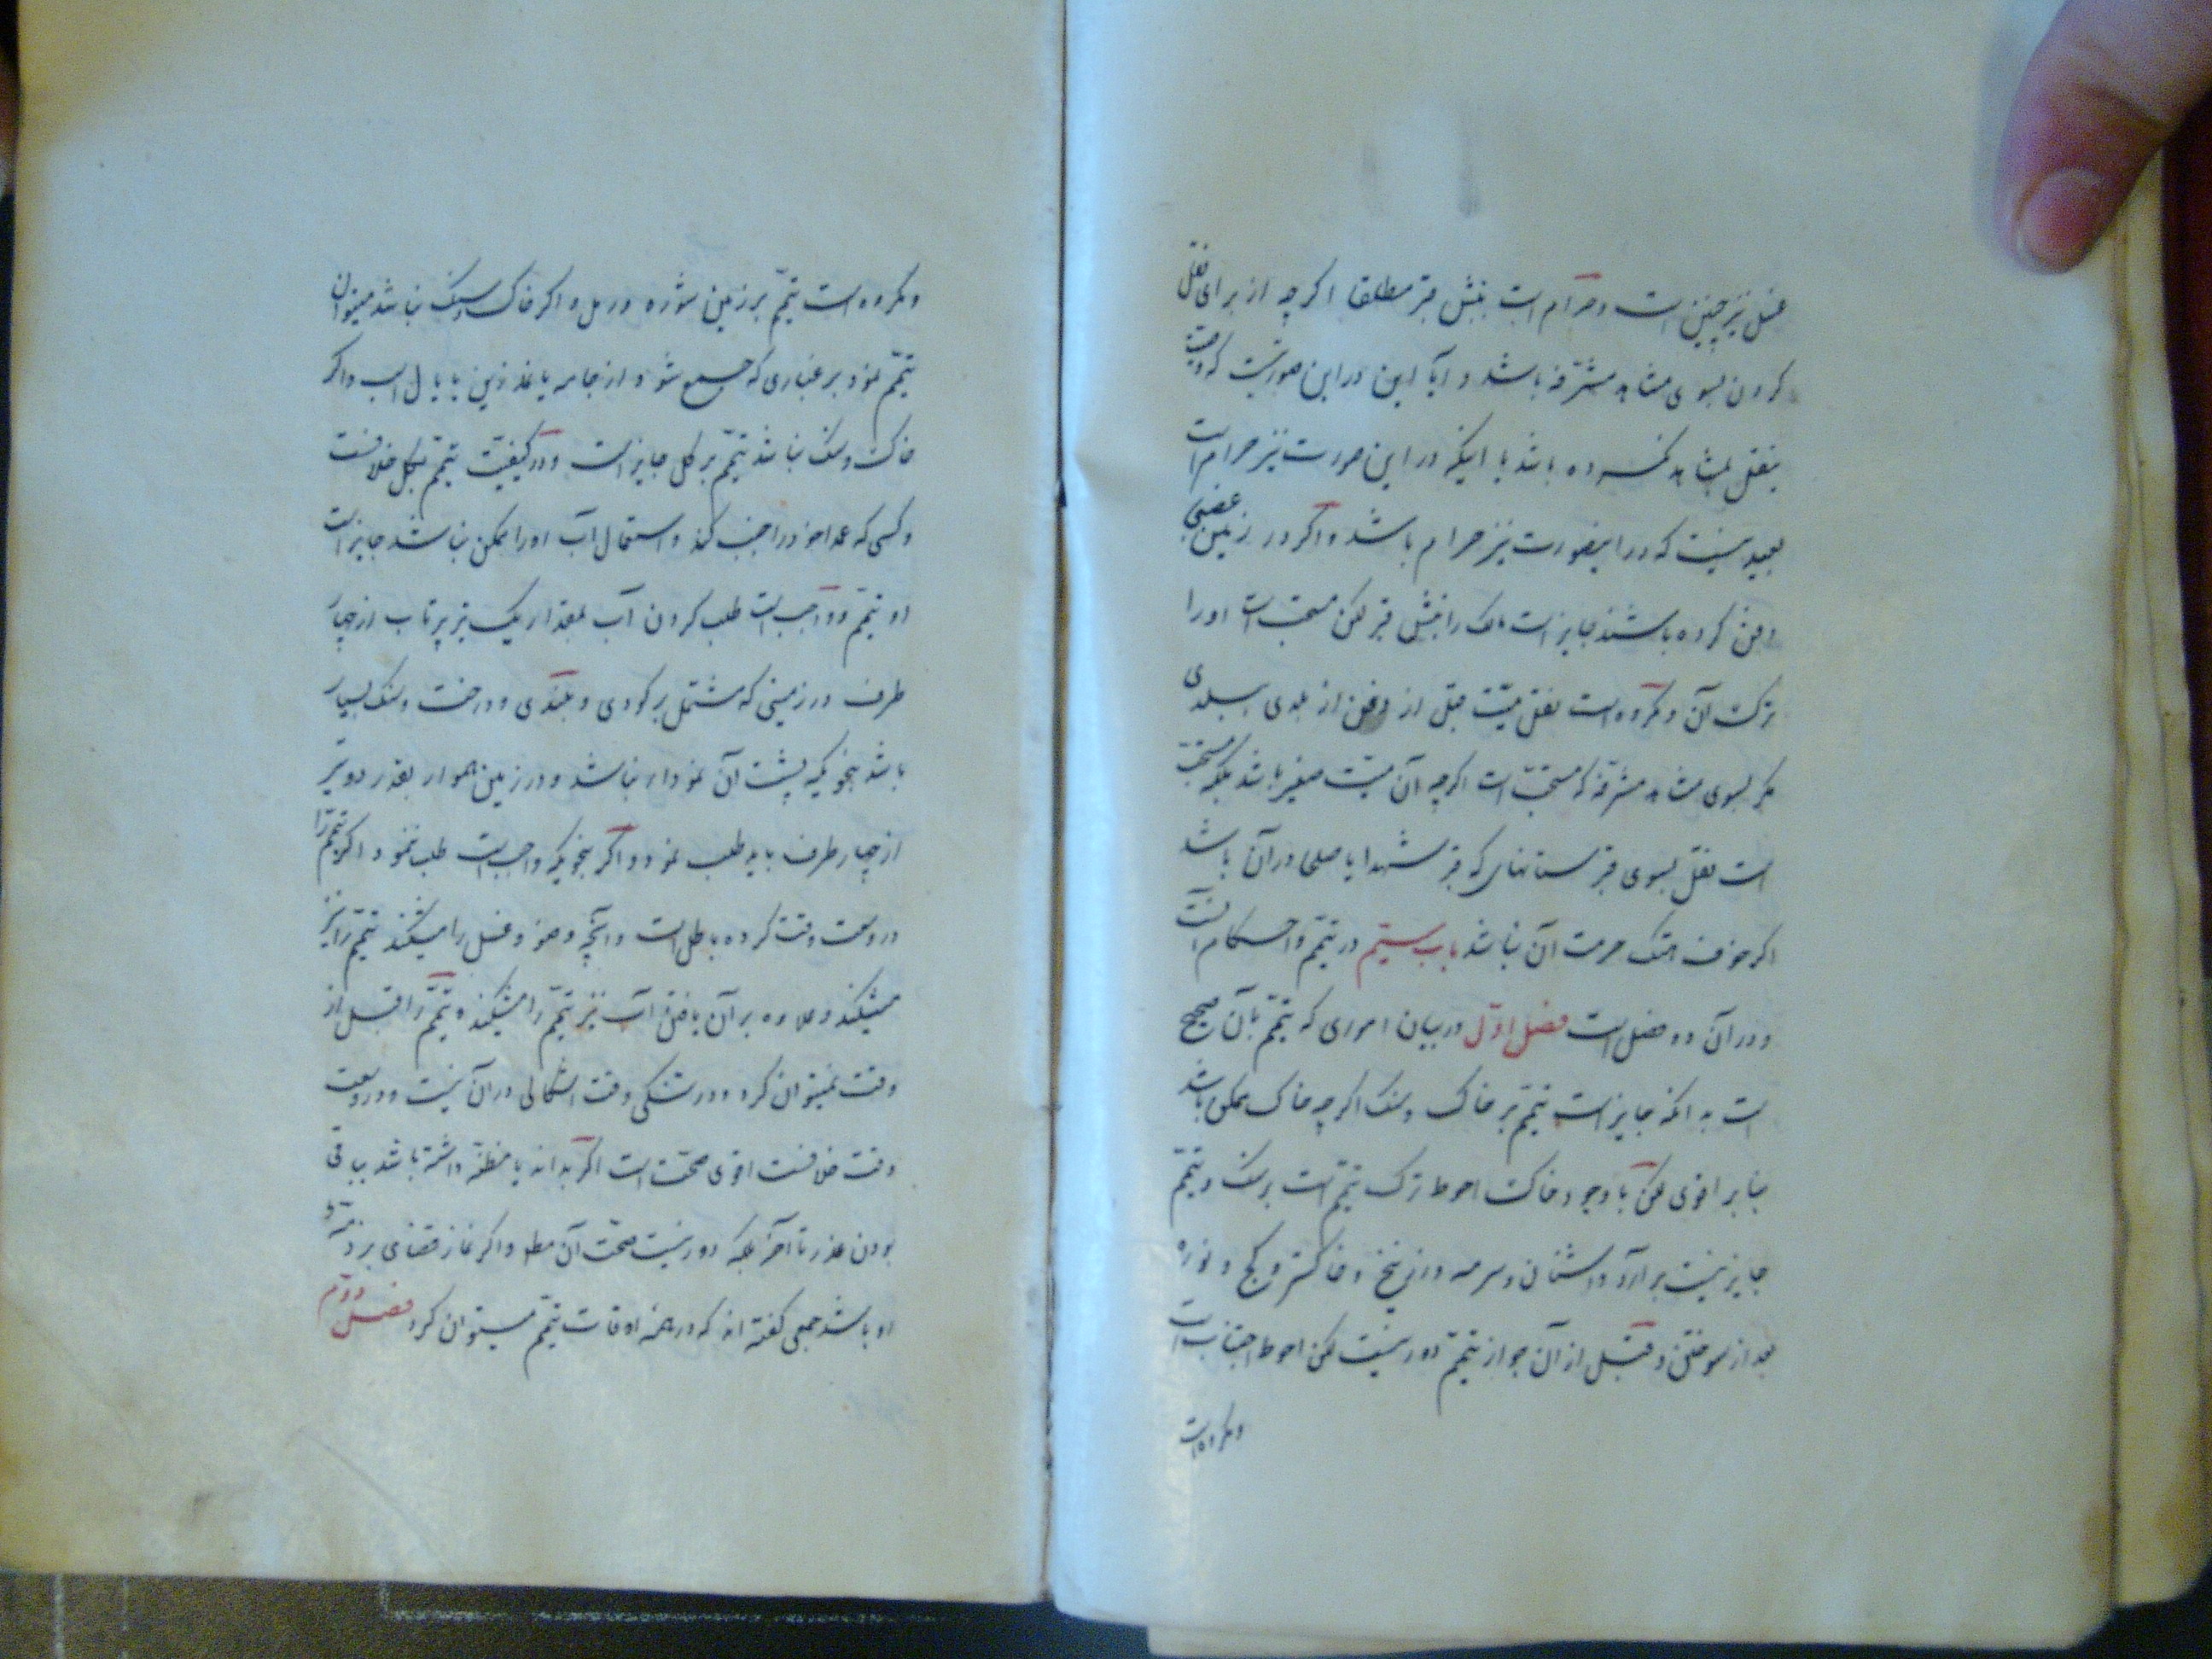 غسل نیز چنین است و حرام است نبش قبر مطلقا اگر چه از برای نقل
کردن بسوی مشاهد مشرفه باشد و آیا این در این صورتیست که وصیت
بنقل بمشاهد نکرده باشد یا اینکه در این صورت نیز حرام است
بعید نیست که در اینصورت نیز حرام باشد و اگر در زمین غصبی
دفن کرده باشند جایز است مالک را نبش قبر لکن مستحب است او را
ترک آن و مکروه است نقل میت قبل از دفن از بلدی ببلدی
مگر بسوی مشاهد مشرفه که مستحب است اگر چه آن میت صغیر باشد بلکه مستحب
است نقل بسوی قبرستانهای که قبر شهدا یا صلحا در آن باشد
اگر خوف هتک حرمت آن نباشد باب سیم در تیمم و احکام آنست
و در آن دو فصل است فصل اول در بیان اموری که تیمم بآن صحیح
است بدانکه جایز است تیمم بر خاک و سنک اگر چه خاک ممکن باشد
بنا بر اقوی لکن با وجود خاک احوط ترک تیمم است بر سنک و تیمم
جایز نیست بر آرد و اشنان و سرمه و زرنیخ و خاکستر و کج و نوره
بعد از سوختن و قبل از آن جواز تیمم دور نیست لکن احوط اجتناب است
و مکروه است
و مکروه است تیمم بر زمین شوره و رمل و اگر خاک و سنک نباشد میتوان
تیمم نمود بر غباری که جمع شود از جامه یا نمد زین یا یال اسب و اگر
خاک و سنک نباشد تیمم بر گل جایز است و در کیفیت تیمم بگل خلافست
و کسی که عمدا خود را جنب کند و استعمال آب او را ممکن نباشد جایز است
او تیمم و واجب است طلب کردن آب بمقدار یک تیر پرتاب از چهار
طرف در زمینی که مشتمل بر کودی و بلندی و درخت و سنک بسیار
باشد بنحویکه پشت آن نمودار نباشد و در زمین هموار بقدر دو تیر
از چهار طرف باید طلب نمود و اگر بنحویکه واجب است طلب ننمود اگر تیمم را
در وسعت وقت کرده باطل است و آنچه وضو و غسل را میشکند تیمم را نیز
میشکند و علاوه بر آن یافتن آب نیز تیمم را میشکند و تیمم را قبل از
وقت نمیتوان کرد و در تنکی وقت اشکالی در آن نیست و در وسعت
وقت خلافست اقوی صحت است اگر بداند یا مظنه داشته باشد بباقی
بودن عذر تا آخر بلکه دور نیست صحت آن مط و اگر نماز قضای بر ذمه
او باشد جمعی گفته اند که در همه اوقات تیمم میتوان کرد فصل دوم